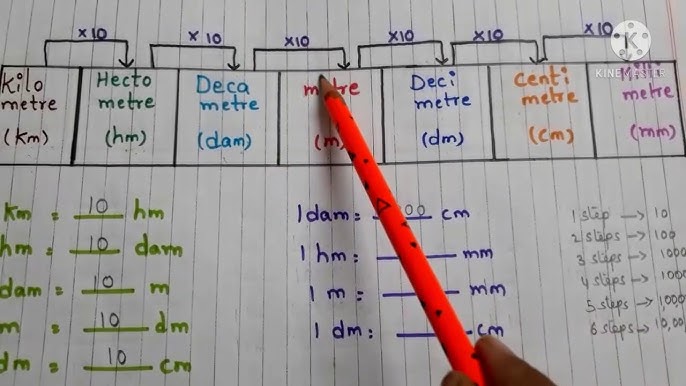 x10 x10 x10 x10 x10 x10
KINEMASTER
Kilo metre (Km)
Hecto metre (hm)
Deca metre (dam)
metre (m)
Deci metre (dm)
Centi metre (cm)
metre (mm)
Km = 10 hm
hm = 10 dam
dam = 10 m
m = 10 dm
dm = 10 cm
1 dam = 00 cm
1 hm = mm
1 m = mm
1 dm = cm
1 step → 10
2 steps → 100
3 steps → 1000
4 steps → 1000
5 steps → 1,000
6 steps → 10,00